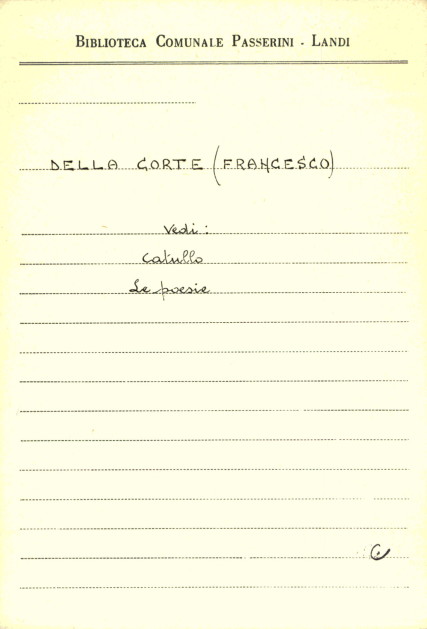 BIBLIOTECA COMUNALE PASSERINI - LANDI
DELLA CORTE (FRANCESCO)
Vedi:
Catullo
Le poesie